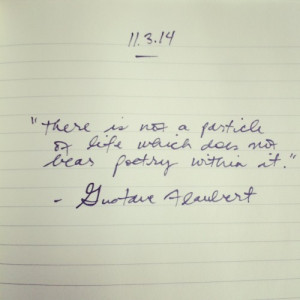 11.3.14
"there is not a particle
of life which does not
bear poetry within it."
- Gustave Flaubert